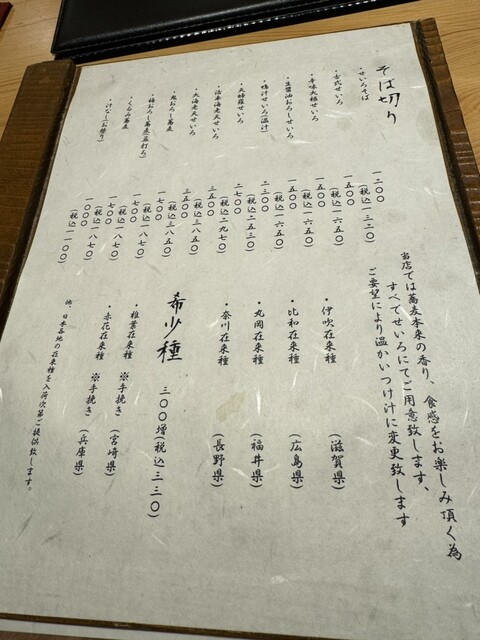 そば切り
・せいろそば 一二〇〇
(税込一三二〇)
・古式せいろ 一五〇〇
(税込一六五〇)
・辛味大根せいろ 一五〇〇
(税込一六五〇)
・生醤油おろしせいろ 一五〇〇
(税込一六五〇)
・鴨汁せいろ(温汁) 二三〇〇
(税込二五三〇)
・天婦羅せいろ 二七〇〇
(税込二九七〇)
・活車海老天せいろ 三五〇〇
(税込三八五〇)
・大海老天せいろ 三五〇〇
(税込三八五〇)
・鬼おろし蕎麦 一七〇〇
(税込一八七〇)
・梅おろし蕎麦 一七〇〇
(税込一八七〇)
・くるみ蕎麦 一七〇〇
(税込一八七〇)
・汁なし(お替り) 一〇〇〇
(税込一一〇〇)
当店では蕎麦本来の香り、食感をお楽しみ頂く為
すべてせいろにてご用意致します、
ご要望により温かいつけ汁に変更致します
・伊吹在来種 (滋賀県)
・比和在来種 (広島県)
・丸岡在来種 (福井県)
・奈川在来種 (長野県)
希少種 三〇〇増(税込三三〇)
・椎葉在来種 ※手挽き (宮崎県)
・赤花在来種 ※手挽き (兵庫県)
他、日本各地の在来種を入荷次第ご提供致します。